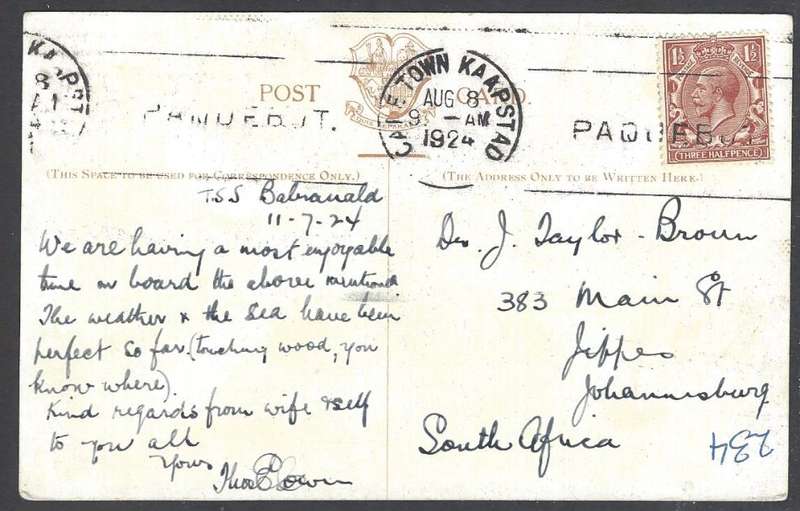 POST CARD.
KAAPST
8
CAPE TOWN KAAPSTAD
AUG 8
9 — AM
1924
PAQUEBOT.
PAQUEBOT
1½ 1½
THREE HALFPENCE
(THIS SPACE TO BE USED FOR CORRESPONDENCE ONLY.)
(THE ADDRESS ONLY TO BE WRITTEN HERE.)
T.S.S Babranald
11-7-24
We are having a most enjoyable
time on board the above mentioned
The weather & the sea have been
perfect so far. (touching wood, you
know where).
Kind regards from wife & self
to you all
Yours
Thos
Dr. J. Taylor-Brown
383 Main St
Jippes
Johannesburg
South Africa
234